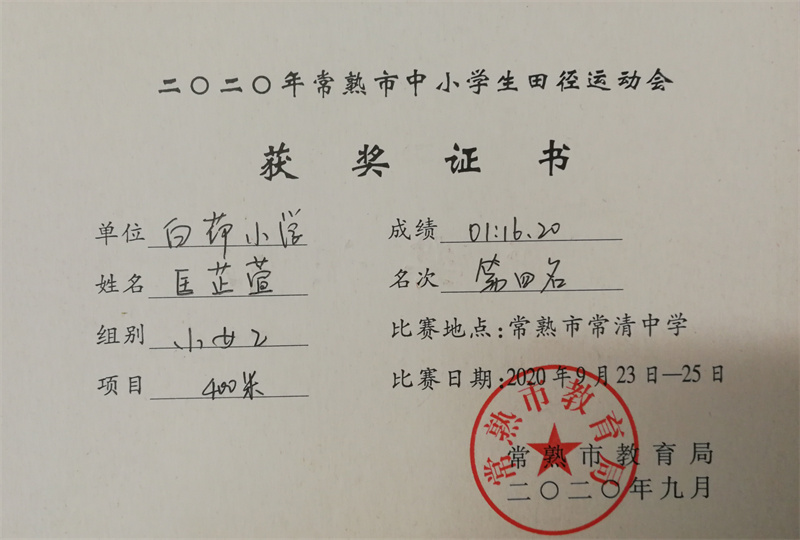 二〇二〇年常熟市中小学生田径运动会
获奖证书
单位 白茆小学
成绩 01:16.20
姓名 匡芷萱
名次 第四名
组别 小女乙
比赛地点:常熟市常清中学
项目 400米
比赛日期:2020年9月23日—25日
常熟市教育局
常熟市教育局
二〇二〇年九月